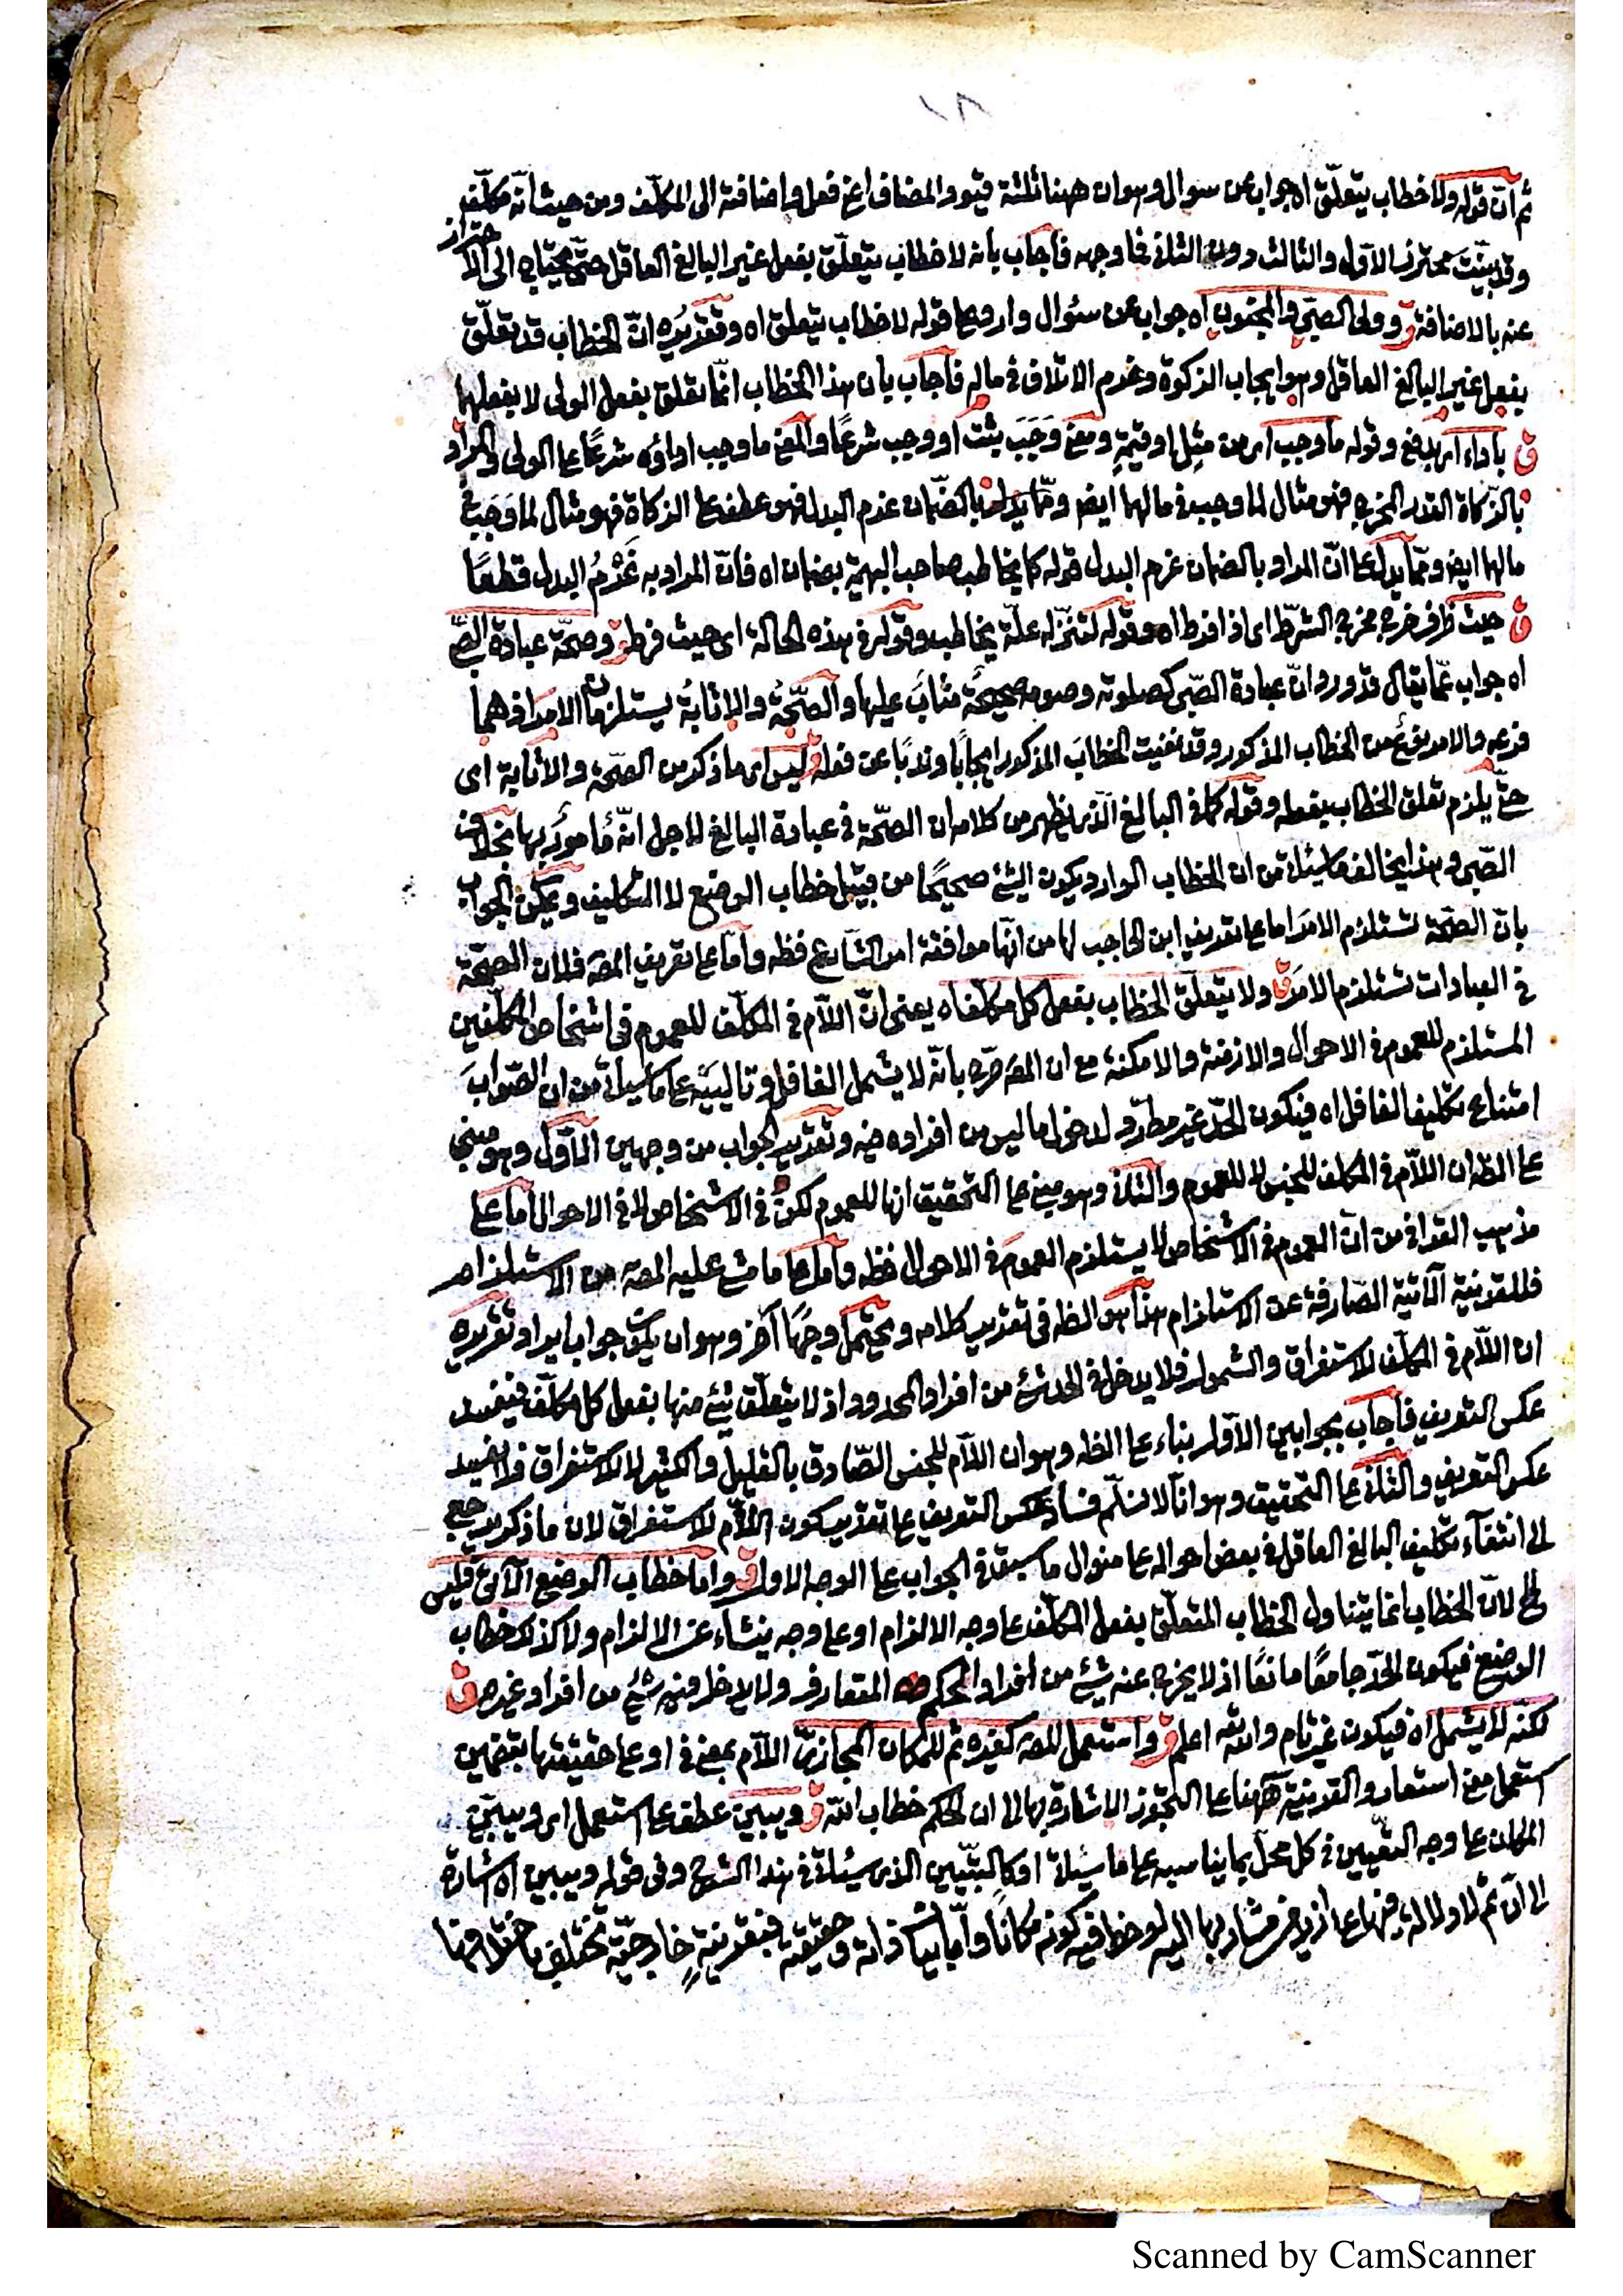 ١٨
ثم ان قوله ولا خطاب يتعلّق اه جواب عن سوال وهو ان ههنا ثلثة قيود المضاف اعنى فعل واضافته الى المكلّف ومن حيث انّه مكلّف
وقد بيّنت محترز الاوّل والثالث دون الثانى فما وجهه فاجاب بانه لا خطاب يتعلّق بفعل غير البالغ العاقل حتّى يحتاج الى الاحتراز
عنه بالاضافة ق وولى الصبىّ والمجنون اه جواب عن سئوال وارد على قوله لا خطاب يتعلق اه وتقديره انّ الخطاب قد تعلّق
بفعل غير البالغ العاقل وهو ايجاب الزكوة وغرم الاتلاف فى ماله فاجاب بان هذا الخطاب انّما تعلق بفعل الولى لا بفعلهما
ق باداء اى بدفع وقوله ما وجب اى من مثل او قيمةٍ ومعنى وَجَبَ ثبت او وجب شرعًا والمعنى ما وجب اداؤه شرعًا على الولى والمراد
بالزّكاة القدر المخرج فهو مثال لما وجب فى مالهما ايض وممّا يدل بالضّمان غرم البدل فهو عطف على الزكاة فهو مثال لما وَجَبَ فى
مالهما ايض وممّا يدل على انّ المراد بالضمان غرم البدل قوله كما يخاطب صاحب البهيمة بضمان اه فانّ المراد به غُرْمُ البدل قطعًا
ق حيث فرّط خرج مخرج الشرط اى اذا فرط اه وقوله لتنزّله علّة يخاطب وقوله فى هذه الحالة اى حيث فرط ق وصحّة عبادة الصّبى
اه جواب عمّا يقال قد ورد انّ عبادة الصّبى كصلوته وصومه صحيحةٌ مثابٌ عليها والصّحّةُ والاثابةُ يستلزمان الامرَ اذ هما
فرعه والامر نوعٌ من الخطاب المذكور وقد نفيت الخطابَ المذكور ايجابًا وندبًا عن فعله ق ليس اى ما ذكر من الصحّة والاثابة اى
حتّى يلزم تعلق الخطاب بفعله وقوله كما فى البالغ الّذى يظهر من كلامه ان الصّحّة فى عبادة البالغ لاجل انّه مُامورٌ بها بخلاف
الصّبى وهذا يخالف ما سيئاتى من ان الخطاب الوارد بكون الشئ صحيحًا من قبيل خطاب الوضع لا التكليف ويمكن الجواب
بانّ الصحّة تستلزم الامرَ اما على تعريف ابن الحاجب لها من انّها موافقة امر الشّارع فظه وامّا على تعريف المصه فلان الصحّة
فى العبادات تستلزم الامرَ ق ولا يتعلّق الخطاب بفعل كل مكلّف اه يعنى انّ اللاّم فى المكلّف للعموم فى اشخاص المكلّفين
المستلزم للعموم فى الاحوال والازمنة والامكنة مع ان المصه صرّح بانّه لا يشمل الغافل وتاليَيْه على ما سيأتى من ان الصّوابَ
امتناع تكليف الغافل اه فيكون الحدّ غير مطّرد لدخول ما ليس من افراده فيه وتقرير الجواب من وجهين الاوّل وهو مبنى
على الظه ان اللاّم فى المكلف للجنس لا للعموم والثانى وهو مبنى على التحقيق انها للعموم لكن فى الاشخاص لا فى الاحوال اما على
مذهب القرافى من انّ العموم فى الاشخاص لا يستلزم العمومَ فى الاحوال فظه واما على ما مشى عليه المصه من الاستلزام
فللقرينة الآتية الصّارفة عن الاستلزام هذا هو الظه فى تقرير كلامه ويحتمل وجهًا آخر وهو ان يكون جوابا يراد تقريره
ان اللاّم فى المكلّف للاستغراق والشمول فلا يدخل فى الحد شئ من افراد المحدود اذ لا يتعلّق شئ منها بفعل كل مكلّف فيفسد
عكس التعريف فاجاب بجوابين الاوّل بناء على الظه وهو ان اللاّم للجنس الصّادق بالقليل والكثير لا للاستغراق فلا يفسد
عكس التعريف والثانى على التحقيق وهو انّا لا نسلّم فساد عكس التعريف على تقدير كون اللاّم للاستغراق لان ما ذكر يرجع
الى انتفاء تكليف البالغ العاقل فى بعض احواله على منوال ما سبق فى الجواب على الوجه الاول ق واما خطاب الوضع الآتى فليس
الخ لانّ الخطاب انما يتناول الخطاب المتعلّق بفعل المكلّف على وجه الالزام او على وجه ينشاء عن الالزام ولا كذلك خطاب
الوضع فيكون الحدّ جامعًا مانعًا اذ لا يخرج عنه شيئ من افراد الحكم المتعارف ولا يدخل فيه شئ من افراد غيره ق
لكنّه لا يشمل اه فيكون غير تام والله اعلم ق واستعمل المصه كغيره ثم للمكان المجازىّ اللاّم بمعنى فى او على حقيقتها بتضمين
استعمل معنى استعار والقرينة ههنا على التجوّز الاشارة بها الى ان الحكم خطاب الله ق ويبيّن عطف على استعمل اى ويبيّن
المكان على وجه التعيين فى كل محلّ بما يناسبه على ما سيأتى او كالتبيين الذى سيئاتى فى هذا الشرح وفى قوله ويبيّن اه اشارة
الى انّ ثم لا دلالة فيها على ازيد من مشار بها اليه لوحظ فيه كونه مكانًا وامّا بيان ذاته وحقيقته فبقرينةٍ خارجيّة تختلف باختلافها